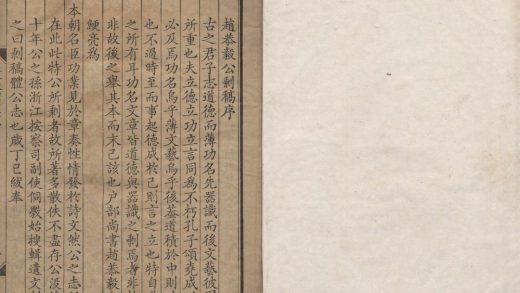 趙恭毅公剩稿序
古之君子志道德而薄功名先器識而後文藝彼
所重也夫立德立功立言同為不朽孔子頌堯成
必及焉功名烏乎薄文藝烏乎後蓋道積於中則
也不過時至而事起德成於己則言之立也特自
之所有耳功名文章皆道德與器識之剩焉者非
非故後之舉其本而末已該也戶部尚書趙恭毅
鯁亮為
本朝名臣功業見於章奏性情發於詩文然公之志
在此此特公所剩者故所著多散佚不盡存公沒
十年公之孫浙江按察司副使侗斆始搜輯遺文
之曰剩稿體公志也歲丁巳紱奉